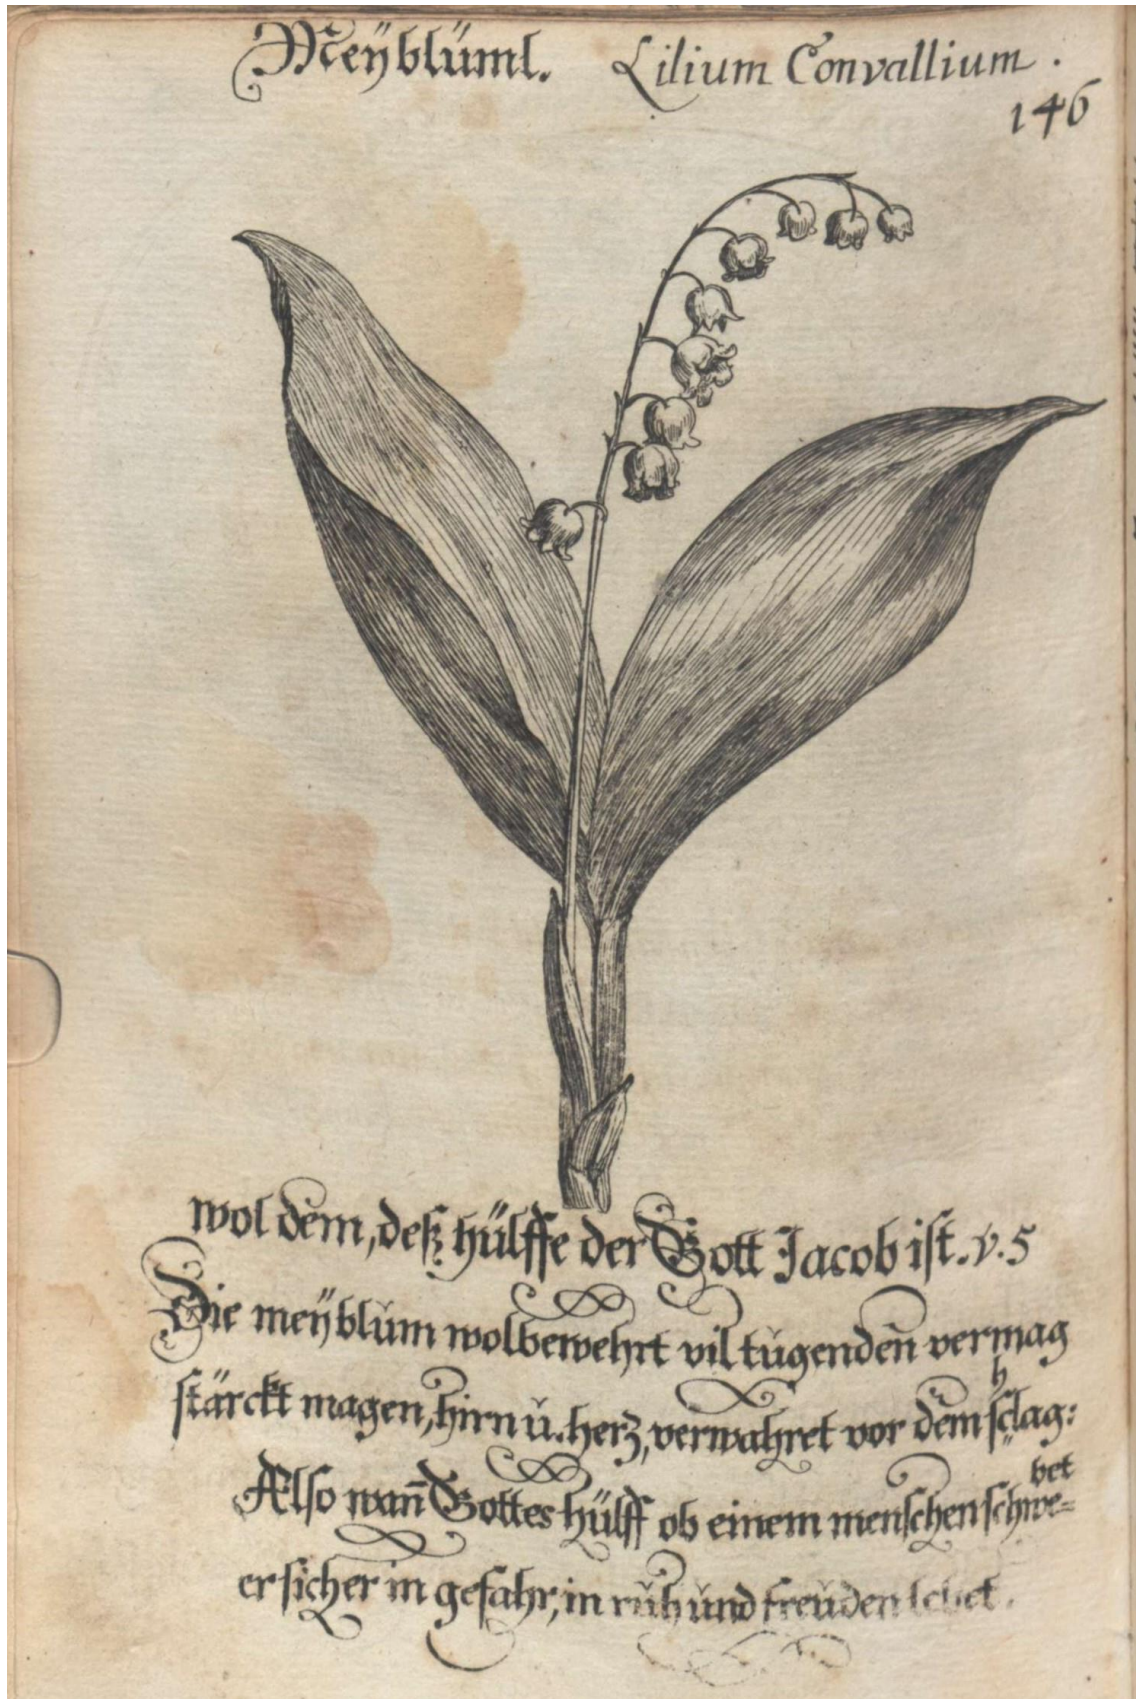 Meÿblüml. Lilium Convallium.
146
wol dem, deß hülffe der Gott Jacob ist. v. 5
Die meÿblŭm wolbewehrt vil tŭgenden vermag
stärckt magen, hirn ŭ. herz, verwahret vor dem schlag:
Also wañ Gottes hülff ob einem menschen schwe=bet
er sicher in gefahr, in rŭh ŭnd freŭden lebet.